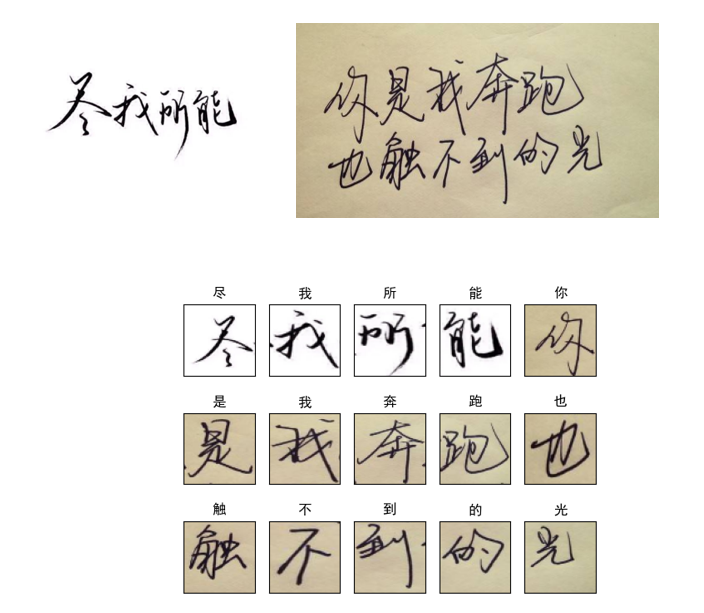 尽我所能
你是我奔跑
也触不到的光
尽 我 所 能 你
尽 我 所 能 你
是 我 奔 跑 也
是 我 奔 跑 也
触 不 到 的 光
触 不 到 的 光